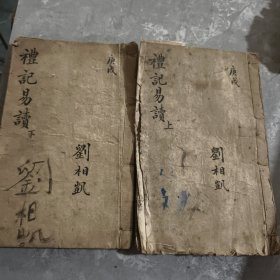 庚戌
禮記易讀上
劉相凱
庚戌
禮記易讀下
劉相凱
劉相凱